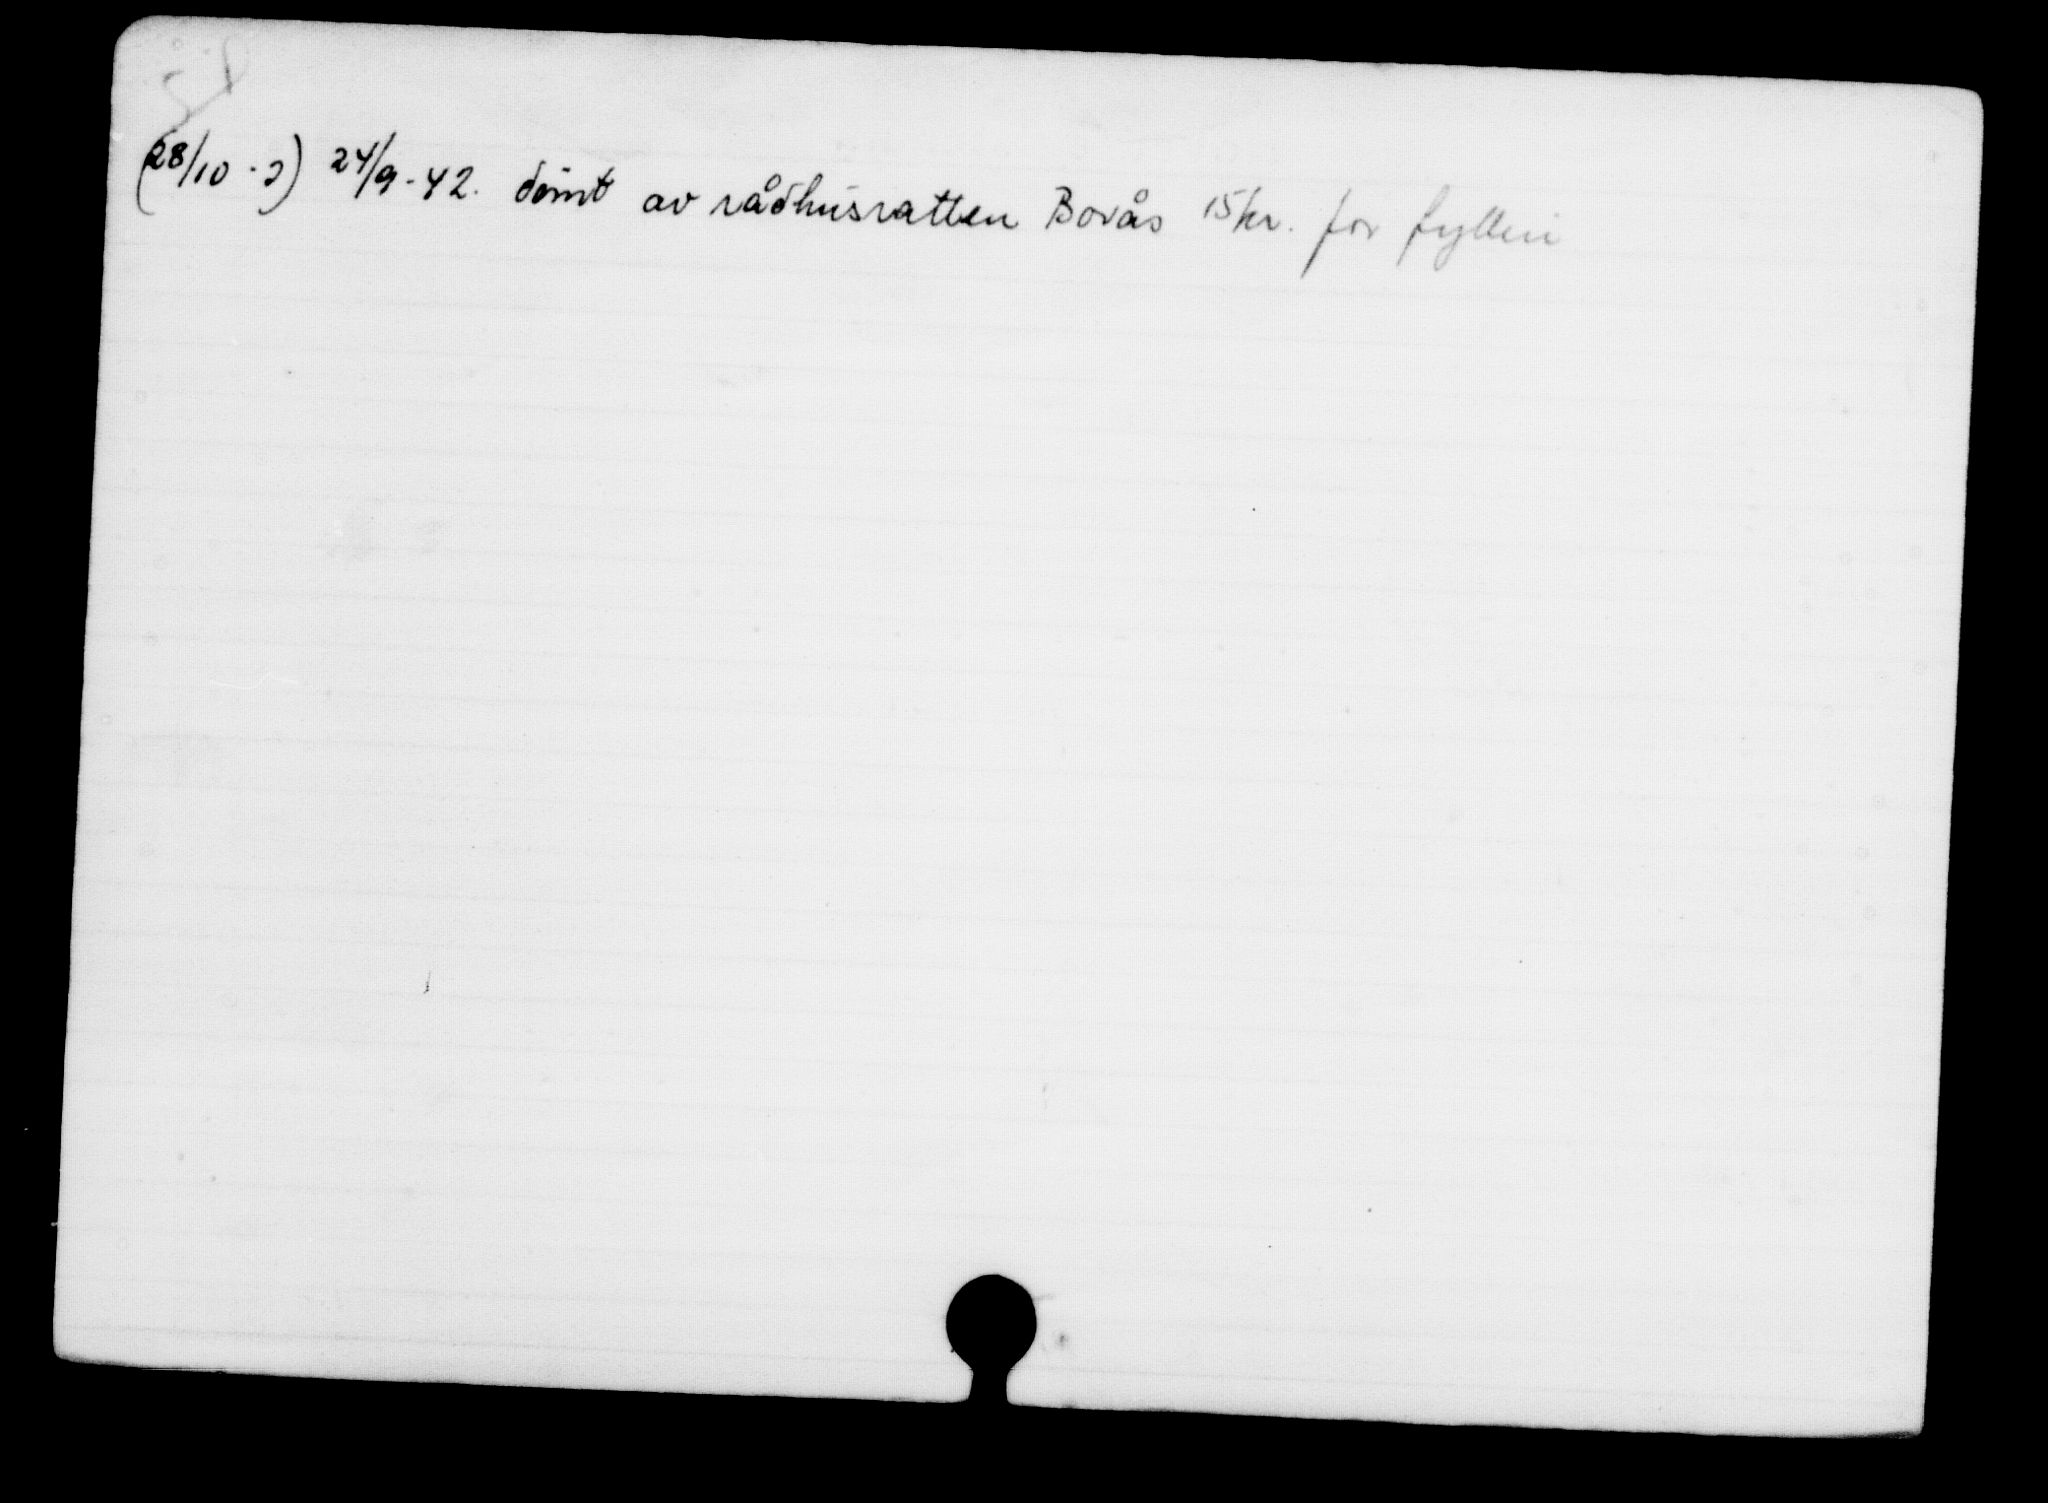 (28/10 - 2) 24/9 - 42. dömt av rådhusratten Borås 15 kr. for fylleri